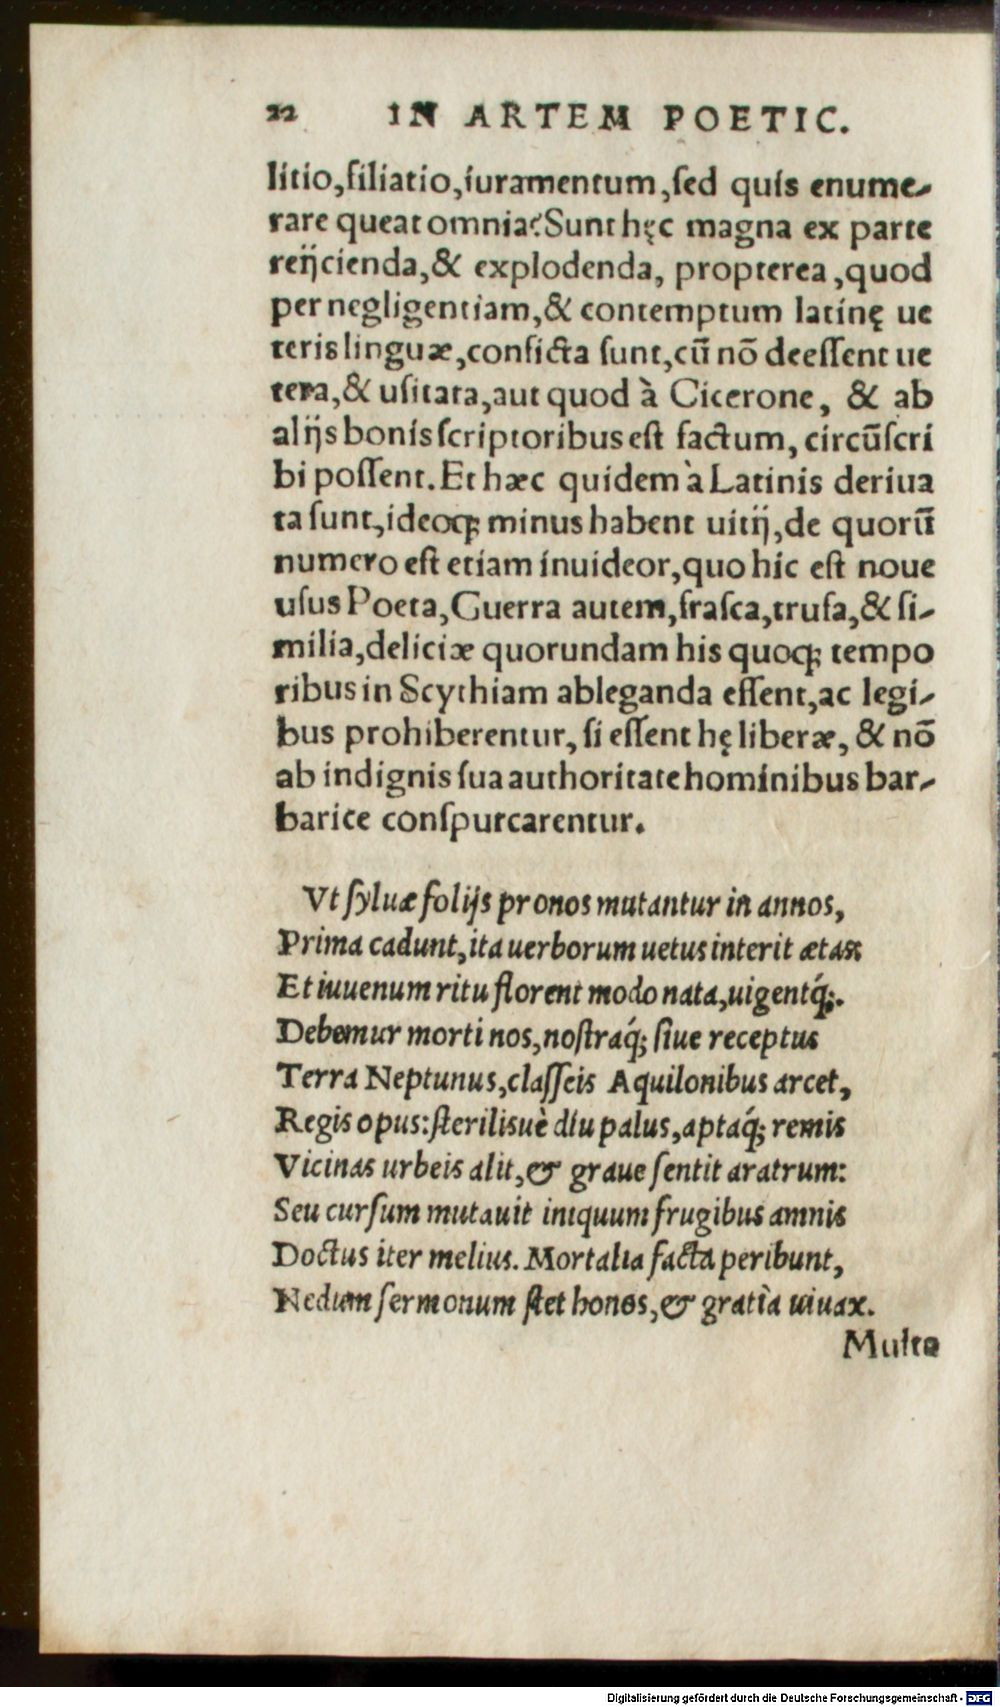 22 IN ARTEM POETIC.
litio, filiatio, iuramentum, sed quis enume-
rare queat omnia? Sunt hęc magna ex parte
reijcienda, & explodenda, propterea, quod
per negligentiam, & contemptum latinę ue
teris linguæ, conficta sunt, cũ nõ deessent ue
tera, & usitata, aut quod à Cicerone, & ab
alijs bonis scriptoribus est factum, circũscri
bi possent. Et hæc quidem à Latinis deriua
ta sunt, ideoq; minus habent uitij, de quorũ
numero est etiam inuideor, quo hic est noue
usus Poeta, Guerra autem, frasca, trufa, & si-
milia, deliciæ quorundam his quoq; tempo
ribus in Scythiam ableganda essent, ac legi-
bus prohiberentur, si essent hę liberæ, & nõ
ab indignis sua authoritate hominibus bar-
barice conspurcarentur.
Vt syluæ folijs pronos mutantur in annos,
Prima cadunt, ita uerborum uetus interit ætas
Et iuuenum ritu florent modo nata, uigentq́;.
Debemur morti nos, nostraq́; siue receptus
Terra Neptunus, classeis Aquilonibus arcet,
Regis opus: sterilisuè diu palus, aptaq́; remis
Vicinas urbeis alit, & graue sentit aratrum:
Seu cursum mutauit iniquum frugibus amnis
Doctus iter melius. Mortalia facta peribunt,
Nedum sermonum stet honos, & gratia uiuax.
Multa
Digitalisierung gefördert durch die Deutsche Forschungsgemeinschaft - DFG